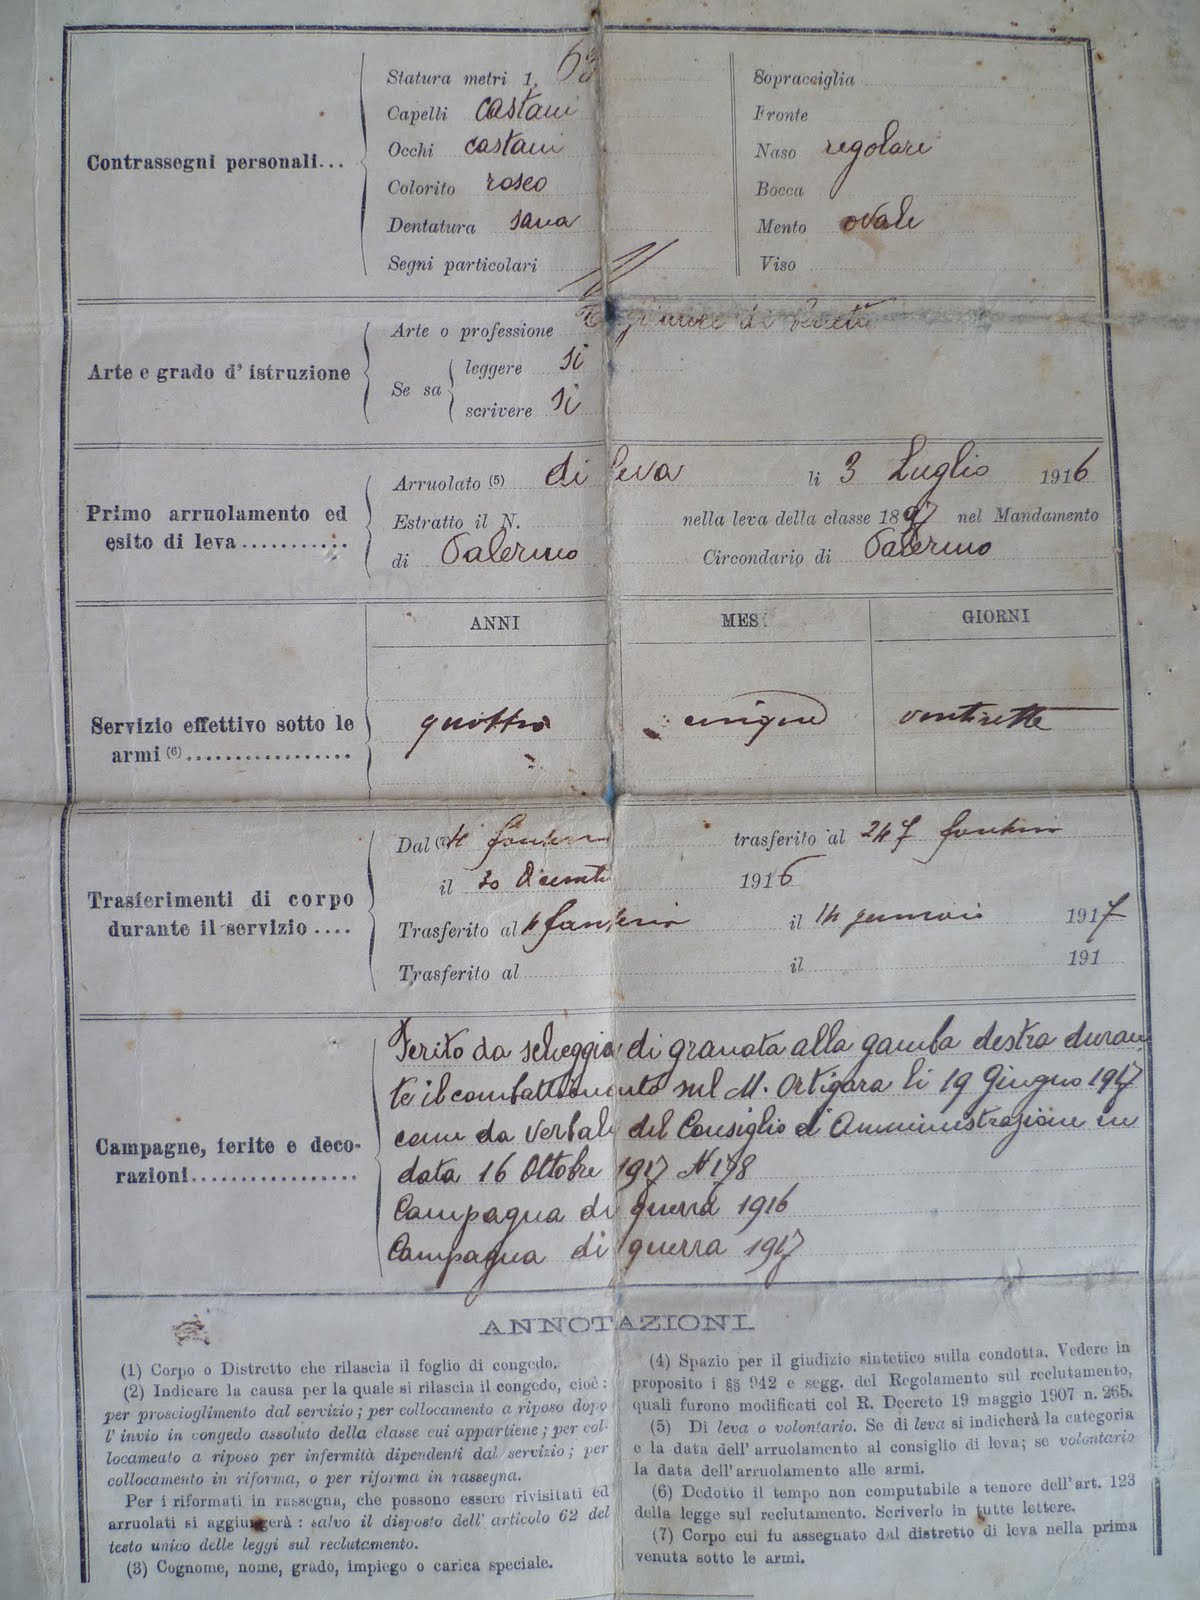 Contrassegni personali...
Statura metri 1, 63
Capelli castani
Occhi castani
Colorito roseo
Dentatura sana
Segni particolari
Sopracciglia
Fronte
Naso regolare
Bocca
Mento ovale
Viso
Arte e grado d' istruzione
Arte o professione
Se sa
leggere si
scrivere si
Primo arruolamento ed
esito di leva...........
Arruolato (5) di leva li 3 Luglio 1916
Estratto il N. nella leva della classe 1897 nel Mandamento
di Palermo Circondario di Palermo
ANNI MESI GIORNI
Servizio effettivo sotto le
armi (6).................
quattro cinque ventisette
Trasferimenti di corpo
durante il servizio ....
Dal (7) 4 fanteria trasferito al 247 fanteria
il 20 Dicembre 1916
Trasferito al 4 fanteria il 14 gennaio 1917
Trasferito al il 191
Campagne, ferite e deco-
razioni.................
Ferito da scheggia di granata alla gamba destra duran
te il combattimento sul M. Ortigara li 19 Giugno 1917
come da verbale del Consiglio d'Amministrazione in
data 16 Ottobre 1917 N 178
Campagna di guerra 1916
Campagna di guerra 1917
ANNOTAZIONI.
(1) Corpo o Distretto che rilascia il foglio di congedo.
(2) Indicare la causa per la quale si rilascia il congedo, cioè:
per proscioglimento dal servizio; per collocamento a riposo dopo
l' invio in congedo assoluto della classe cui appartiene; per col-
locameato a riposo per infermità dipendenti dal servizio; per
collocamento in riforma, o per riforma in rassegna.
Per i riformati in rassegna, che possono essere rivisitati ed
arruolati si aggiungerà: salvo il disposto dell' articolo 62 del
testo unico delle leggi sul reclutamento.
(3) Cognome, nome, grado, impiego o carica speciale.
(4) Spazio per il giudizio sintetico sulla condotta. Vedere in
proposito i §§ 942 e segg. del Regolamento sul reclutamento,
quali furono modificati col R. Decreto 19 maggio 1907 n. 265.
(5) Di leva o volontario. Se di leva si indicherà la categoria
e la data dell' arruolamento al consiglio di leva; se volontario
la data dell'arruolamento alle armi.
(6) Dedotto il tempo non computabile a tenore dell'art. 123
della legge sul reclutamento. Scriverlo in tutte lettere.
(7) Corpo cui fu assegnato dal distretto di leva nella prima
venuta sotto le armi.